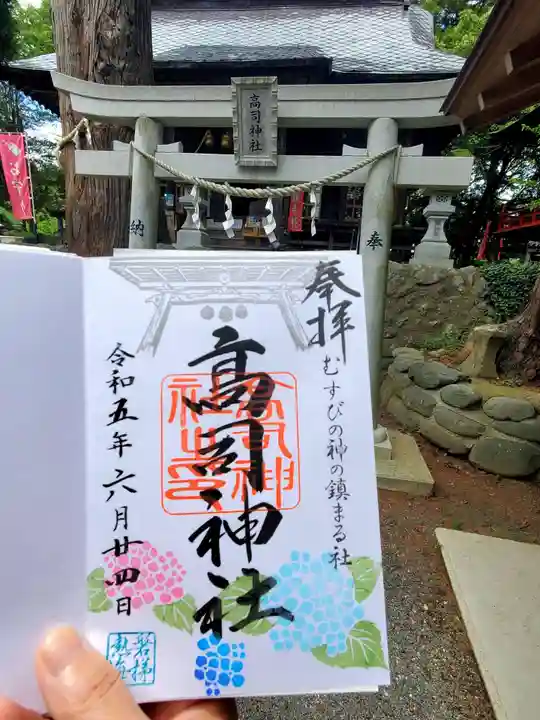 高司神社
納
奉
奉拝
むすびの神の鎮まる社
高司神社
高司神
社之印
令和五年六月廿四日
磐梯
熱海